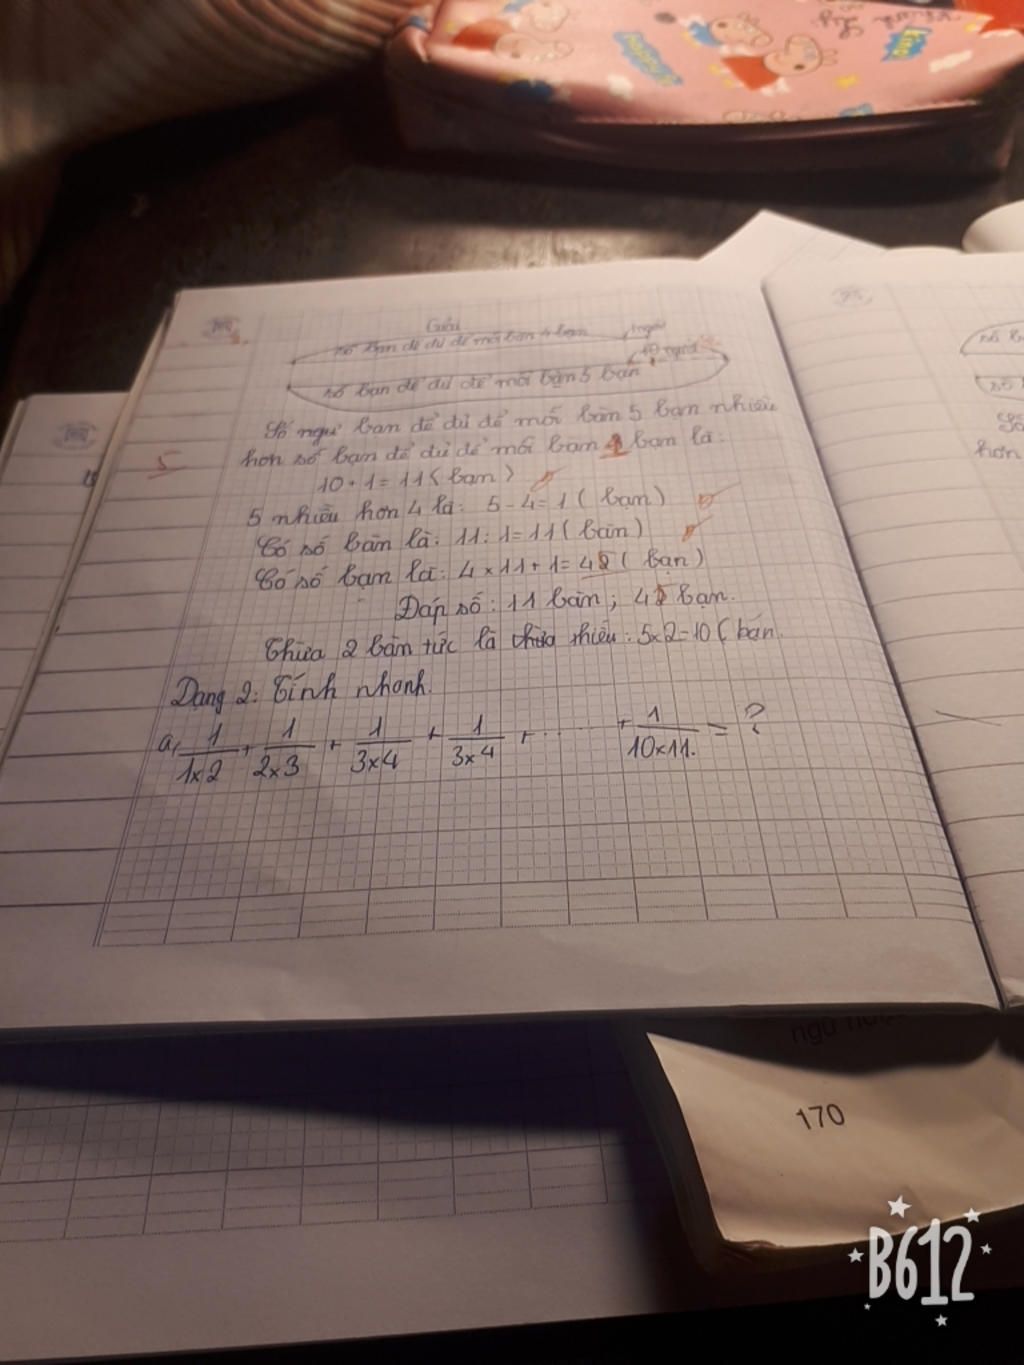 Giải
số bạn để đủ để mỗi bàn 4 bạn 1 người
10 người
số bạn để đủ để mỗi bàn 5 bạn
Số ngư bạn để đủ để mỗi bàn 5 bạn nhiều
hơn số bạn để đủ để mỗi bàn 4 bạn là:
5
10 + 1 = 11 ( bạn )
5 nhiều hơn 4 là: 5 - 4 = 1 ( bạn )
Có số bàn là: 11 : 1 = 11 ( bàn )
Có số bạn là: 4 x 11 + 1 = 45 ( bạn )
Đáp số: 11 bàn ; 45 bạn.
Thừa 2 bàn tức là thiếu : 5x2=10 ( bán.
Dạng 2: Tính nhanh.
a, 1/1x2 + 1/2x3 + 1/3x4 + 1/3x4 + ....... + 1/10x11. = ?
số b
số
Số
hơn
170
B612